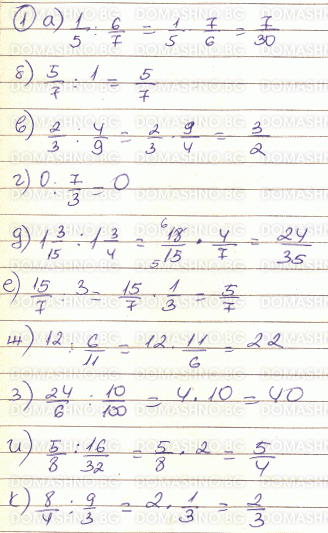 ① а) 1/5 : 6/7 = 1/5 · 7/6 = 7/30
б) 5/7 : 1 = 5/7
в) 2/3 : 4/9 = 2/3 · 9/4 = 3/2
г) 0 : 7/3 = 0
д) 1 3/15 : 1 3/4 = ⁶18/₅15 · 4/7 = 24/35
е) 15/7 : 3 = 15/7 · 1/3 = 5/7
ж) 12 : 6/11 = 12 · 11/6 = 22
з) 24/6 : 10/100 = 4 · 10 = 40
и) 5/8 : 16/32 = 5/8 · 2 = 5/4
к) 8/4 : 9/3 = 2 · 1/3 = 2/3
DOMASHNO.BG